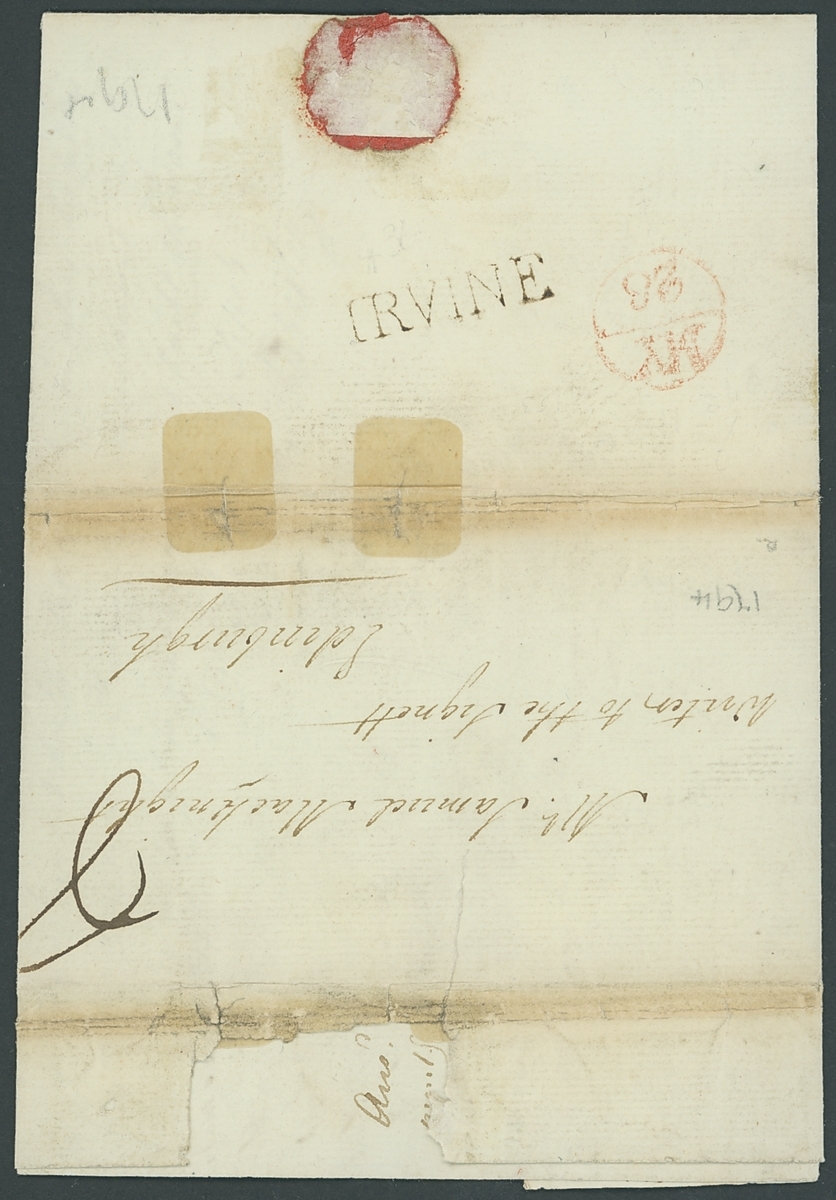 1794
IRVINE
MY
26
1794
Mr. Samuel Macknight
Writer to the Signett
Edinburgh
Ans.